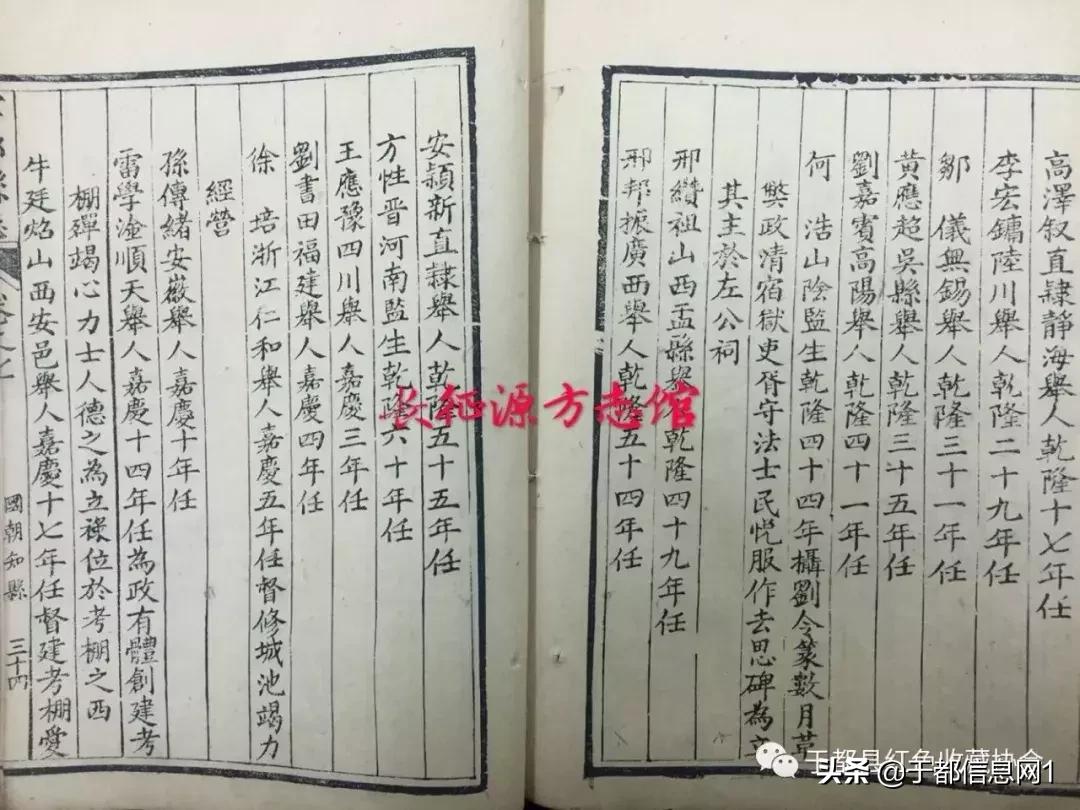 高澤叙直隸靜海舉人乾隆十七年任
李宏鏞陸川舉人乾隆二十九年任
鄒 儀無錫舉人乾隆三十一年任
黃應超吳縣舉人乾隆三十五年任
劉嘉賓高陽舉人乾隆四十一年任
何 浩山陰監生乾隆四十四年攝劉令篆數月革
獘政清宿獄吏胥守法士民悅服作去思碑為立
其主於左公祠
邢纘祖山西盂縣舉人乾隆四十九年任
邢邦振廣西舉人乾隆五十四年任
安頴新直隸舉人乾隆五十五年任
方性晋河南監生乾隆六十年任
王應豫四川舉人嘉慶三年任
劉書田福建舉人嘉慶四年任
徐 培浙江仁和舉人嘉慶五年任督修城池竭力
經營
孫傳緒安徽舉人嘉慶十年任
雷學淦順天舉人嘉慶十四年任為政有體創建考
棚殫竭心力士人德之為立祿位於考棚之西
牛廷焰山西安邑舉人嘉慶十七年任督建考棚愛
國朝知縣 三十四
长征源方志馆
于都县红色收藏协会
头条 @于都信息网1